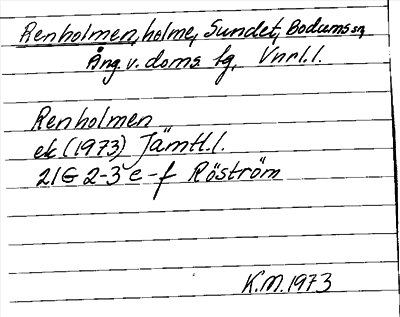 Renholmen, holme, Sundet, Bodums sn,
Ång.v. doms lg, Vnrl.l.
Renholmen
ek (1973) Jämtl.l.
21G 2-3 e-f Röström
K.M.1973